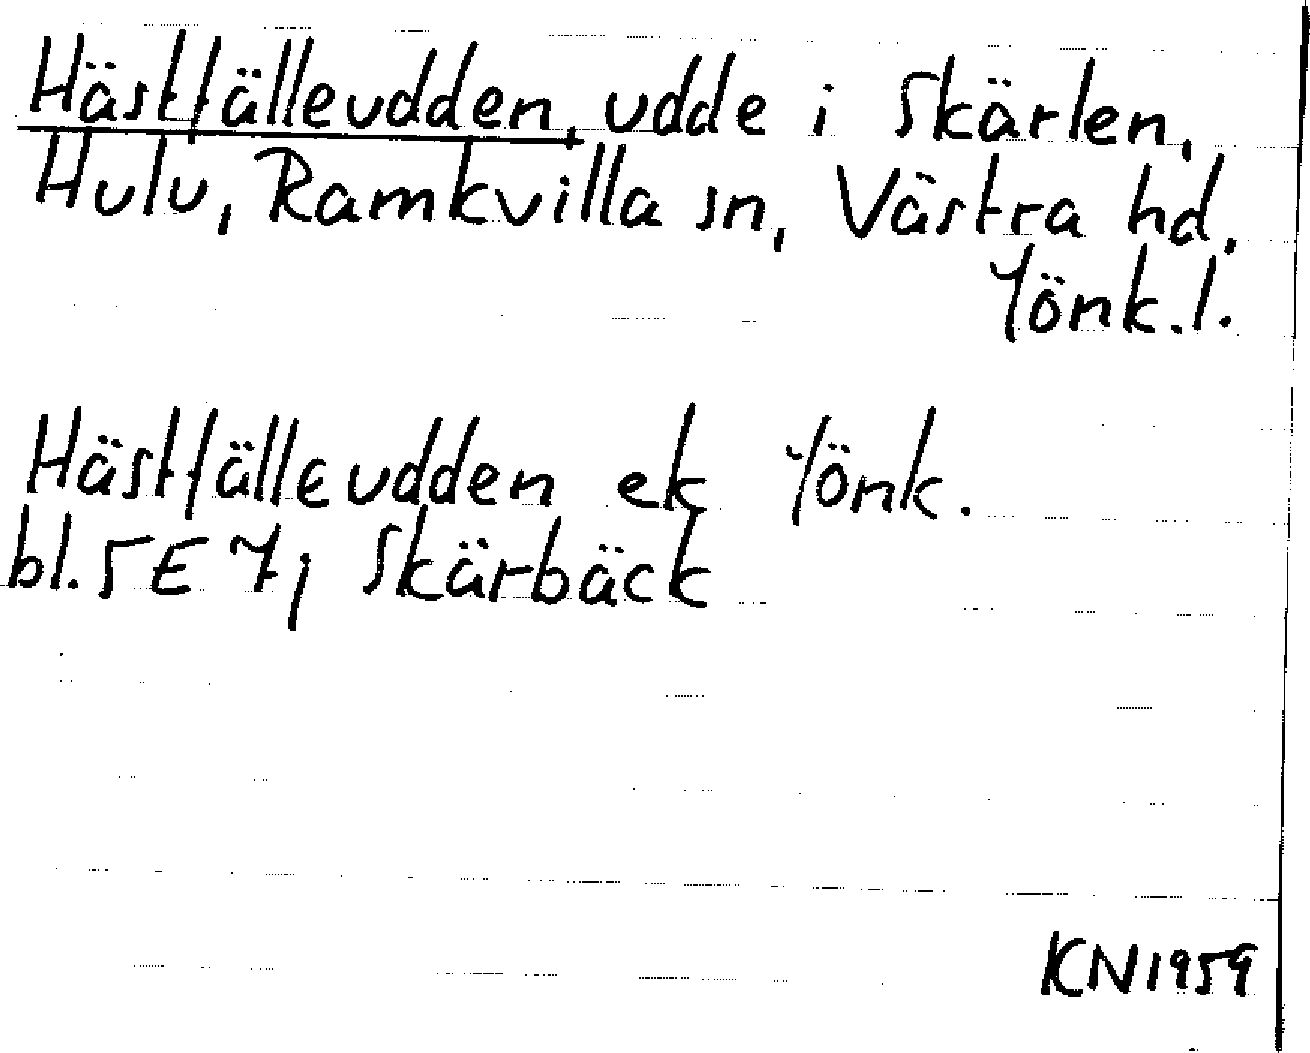 Hästfälleudden, udde i Skärlen,
Hulu, Ramkvilla sn, Västra hd,
Jönk.l.
Hästfälleudden ek Jönk.
bl. 5E 7j Skärbäck
KN1959